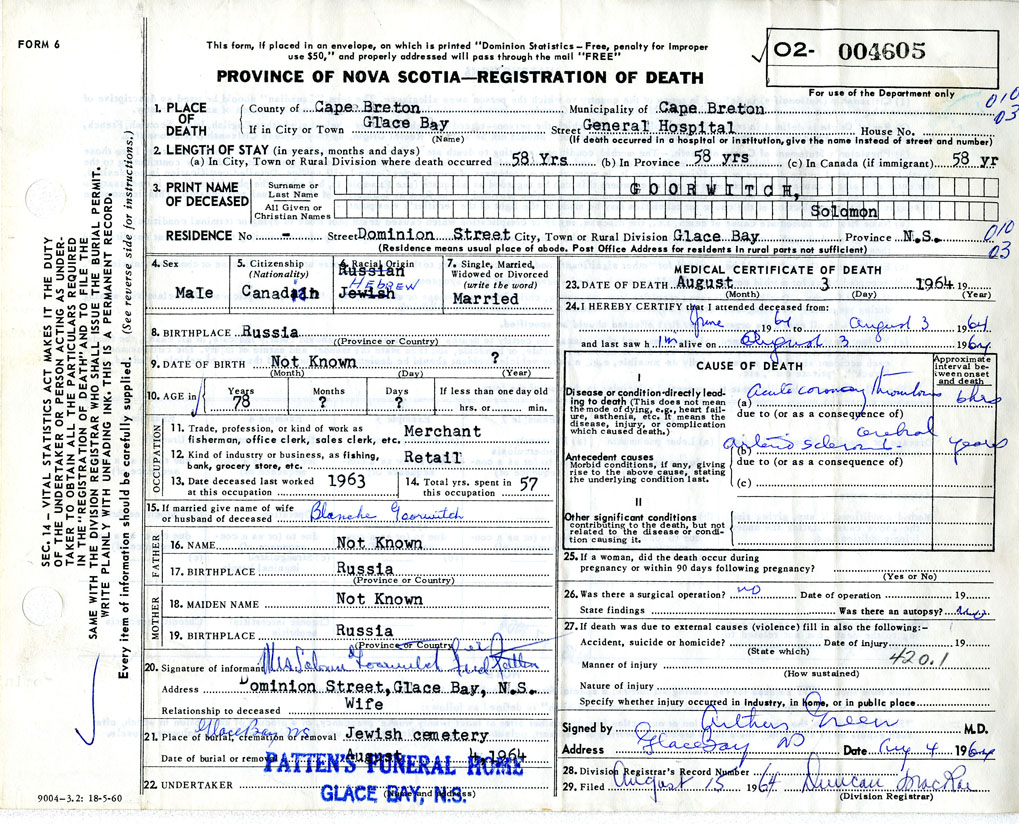 FORM 6
This form, if placed in an envelope, on which is printed "Dominion Statistics—Free, penalty for improper
use $50," and properly addressed will pass through the mail "FREE"
PROVINCE OF NOVA SCOTIA—REGISTRATION OF DEATH
O2- 004605
For use of the Department only
010
03
SEC. 14 – VITAL STATISTICS ACT MAKES IT THE DUTY
OF THE UNDERTAKER OR PERSON ACTING AS UNDER-
TAKER TO OBTAIN ALL THE PARTICULARS REQUIRED
IN THE "REGISTRATION OF DEATH" AND TO FILE THE
SAME WITH THE DIVISION REGISTRAR WHO SHALL ISSUE THE BURIAL PERMIT.
WRITE PLAINLY WITH UNFADING INK. THIS IS A PERMANENT RECORD.
Every item of information should be carefully supplied. (See reverse side for instructions.)
1. PLACE OF DEATH
County of Cape Breton Municipality of Cape Breton
If in City or Town Glace Bay Street General Hospital House No.
(Name) (If death occurred in a hospital or institution, give the name instead of street and number)
2. LENGTH OF STAY (in years, months and days)
(a) In City, Town or Rural Division where death occurred 58 Yrs (b) In Province 58 yrs (c) In Canada (if immigrant) 58 yr
3. PRINT NAME OF DECEASED
Surname or Last Name GOORWITCH,
All Given or Christian Names Solomon
RESIDENCE No - Street Dominion Street City, Town or Rural Division Glace Bay Province N.S.
010
03
(Residence means usual place of abode. Post Office Address for residents in rural parts not sufficient)
4. Sex
Male
5. Citizenship
(Nationality)
Canadian
6. Racial Origin
Russian
HEBREW
Jewish
7. Single, Married,
Widowed or Divorced
(write the word)
Married
8. BIRTHPLACE Russia
(Province or Country)
9. DATE OF BIRTH Not Known ?
(Month) (Day) (Year)
10. AGE in
Years Months Days If less than one day old
78 ? ? hrs. or min.
OCCUPATION
11. Trade, profession, or kind of work as
fisherman, office clerk, sales clerk, etc. Merchant
12. Kind of industry or business, as fishing,
bank, grocery store, etc. Retail
13. Date deceased last worked
at this occupation 1963
14. Total yrs. spent in
this occupation 57
15. If married give name of wife
or husband of deceased Blanche Goorwitch
FATHER
16. NAME Not Known
17. BIRTHPLACE Russia
(Province or Country)
MOTHER
18. MAIDEN NAME Not Known
19. BIRTHPLACE Russia
(Province or Country)
20. Signature of informant Mrs Solomon Goorwitch per Fred Patten
Address Dominion Street, Glace Bay, N.S.
Relationship to deceased Wife
Glace Bay NS
21. Place of burial, cremation or removal Jewish cemetery
Date of burial or removal August 4, 1964
PATTEN'S FUNERAL HOME
22. UNDERTAKER
(Name and address)
GLACE BAY, N.S.
9004–3.2: 18-5-60
MEDICAL CERTIFICATE OF DEATH
23. DATE OF DEATH August 3 1964 19
(Month) (Day) (Year)
24. I HEREBY CERTIFY that I attended deceased from:
June 1964 to August 3 1964
and last saw h im alive on August 3 1964
CAUSE OF DEATH
Approximate interval between onset and death
I
Disease or condition directly lead-
ing to death (This does not mean
the mode of dying, e.g., heart fail-
ure, asthenia, etc. It means the
disease, injury, or complication
which caused death.)
(a) Acute coronary thrombosis 6 hrs
due to (or as a consequence of)
cerebral
(b) arteriosclerosis years
Antecedent causes
Morbid conditions, if any, giving
rise to the above cause, stating
the underlying condition last.
due to (or as a consequence of)
(c)
II
Other significant conditions
contributing to the death, but not
related to the disease or condi-
tion causing it.
25. If a woman, did the death occur during
pregnancy or within 90 days following pregnancy?
(Yes or No)
26. Was there a surgical operation? no Date of operation 19
State findings Was there an autopsy?
27. If death was due to external causes (violence) fill in also the following:–
Accident, suicide or homicide? Date of injury 19
(State which)
420.1
Manner of injury
(How sustained)
Nature of injury
Specify whether injury occurred in industry, in home, or in public place
Signed by Arthur Green M.D.
Address Glace Bay NS Date Aug 4 1964
28. Division Registrar's Record Number
29. Filed August 15 1964 Duncan MacRae
(Division Registrar)